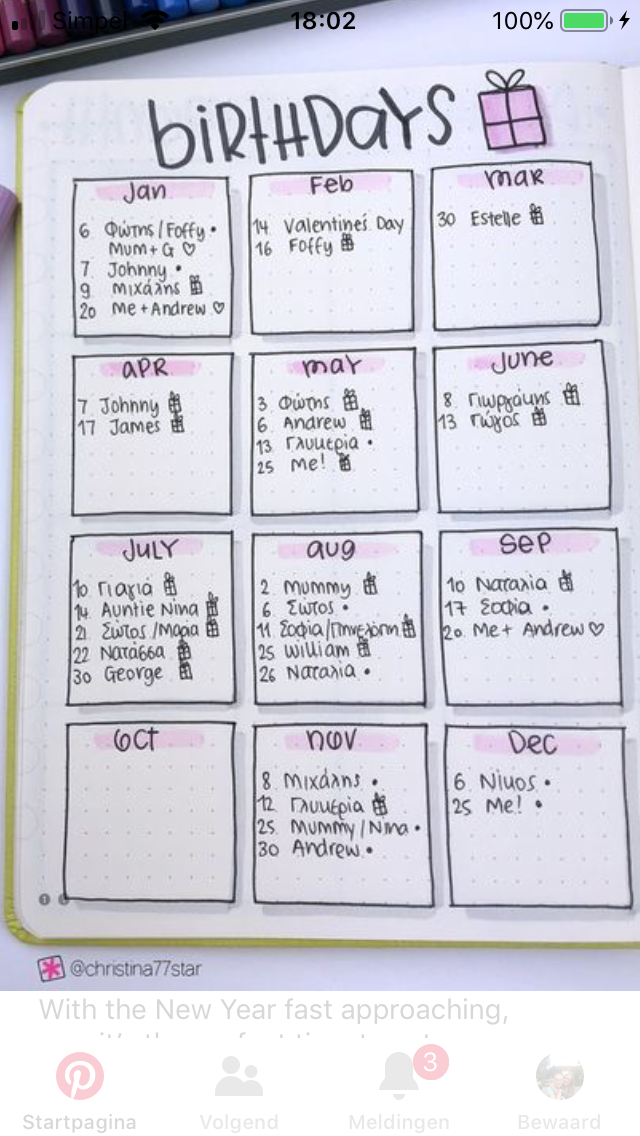 Simpel 18:02 100%
BIRTHDAYS
Jan
6 Φώτης/Foffy •
Mum + G ♡
7 Johnny •
9 Μιχάλης
20 Me + Andrew ♡
Feb
14 Valentine's Day
16 Foffy
MAR
30 Estelle
APR
7 Johnny
17 James
MAY
3 Φώτης
6 Andrew
13 Γλυκερία •
25 Me!
JUNE
8 Γιωργάκης
13 Γιώγος
JULY
10 Γιαγιά
14 Auntie Nina
21 Σώτος/Μαρία
22 Νατάσσα
30 George
aug
2 Mummy
6 Σώτος •
11 Σοφία/Πηνελόπη
25 William
26 Ναταλία •
Sep
10 Ναταλία
17 Σοφία •
20 Me + Andrew ♡
Oct
Nov
8 Μιχάλης •
12 Γλυκερία
25 Mummy/Nina •
30 Andrew •
Dec
6 Νίκος •
25 Me! •
@christina77star
With the New Year fast approaching,
3
Startpagina Volgend Meldingen Bewaard